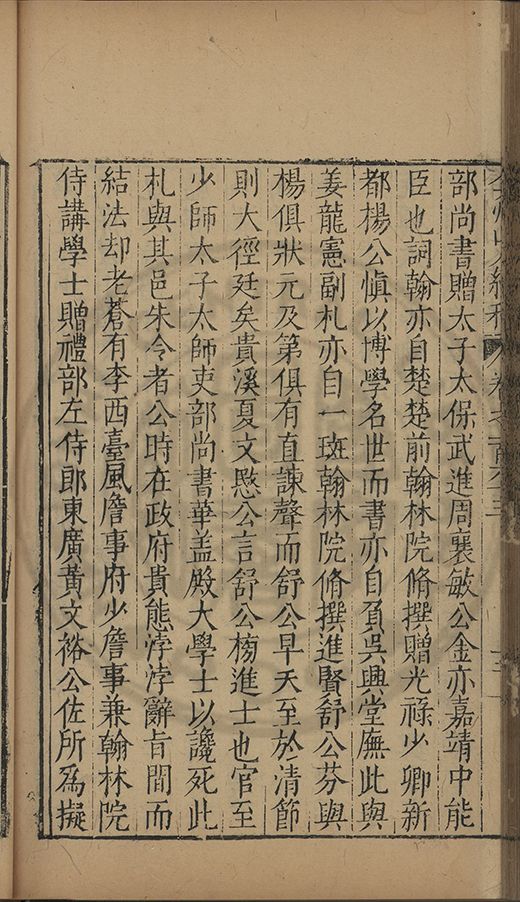 部尚書贈太子太保武進周襄敏公金亦嘉靖中能
臣也詞翰亦自楚楚前翰林院脩撰贈光祿少卿新
都楊公慎以博學名世而書亦自負吳興堂廡此與
姜龍憲副札亦自一斑翰林院脩撰進賢舒公芬與
楊俱狀元及第俱有直諫聲而舒公早夭至於清節
則大徑廷矣貴溪夏文愍公言舒公榜進士也官至
少師太子太師吏部尚書華盖殿大學士以讒死此
札與其邑朱令者公時在政府貴態浡浡辭旨間而
結法却老蒼有李西臺風詹事府少詹事兼翰林院
侍講學士贈禮部左侍郎東廣黃文裕公佐所爲擬